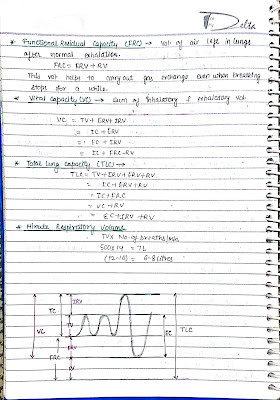 Delta
* Functional Residual Capacity (FRC) → Vol. of air left in lungs
after normal exhalation.
FRC = ERV + RV
This vol. helps to carry out gas exchange even when breathing
stops for a while.
* Vital capacity (VC) → Sum of inhalatory & exhalatory vol.
VC = TV + ERV + IRV
= IC + ERV
= EC + IRV
= IC + FRC - RV
* Total Lung capacity (TLC) →
TLC = TV + IRV + ERV + RV
= IC + ERV + RV
= IC + FRC
= VC + RV
= EC + IRV + RV
* Minute Respiratory Volume
TV x No. of breaths/min
500 x 14 = 7L
(12-16) = 6-8 litres
IRV
IC
TV
VC
EC
TLC
ERV
FRC
RV